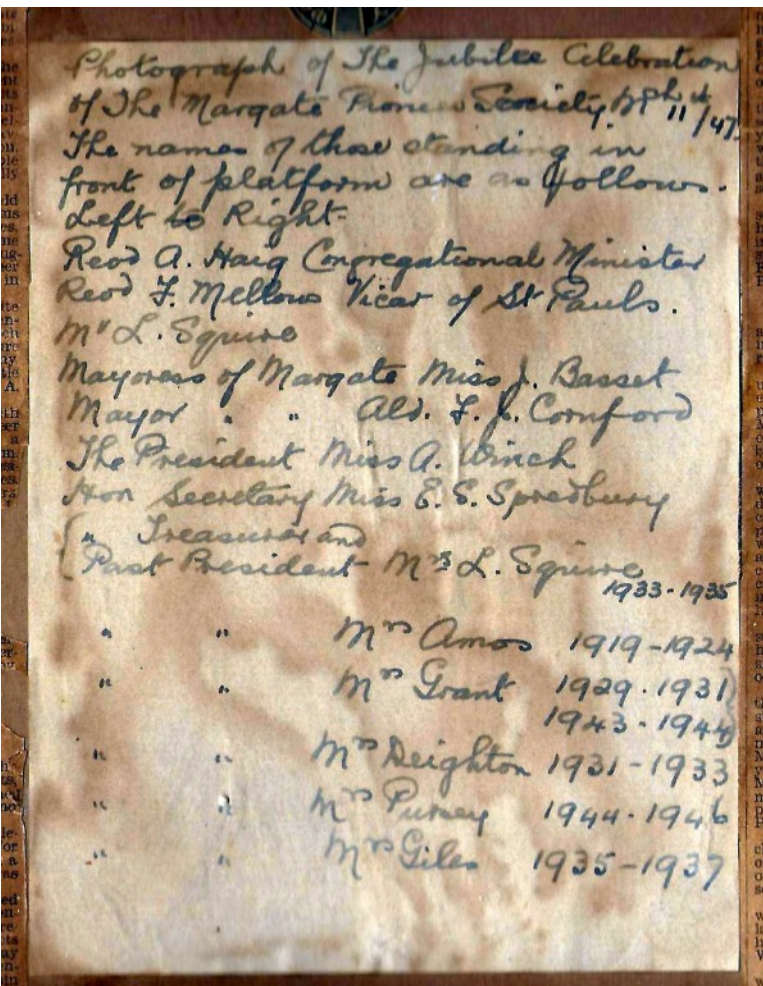 Photograph of The Jubilee Celebration
of The Margate Pioneer Society, Mch 11/47.
The names of those standing in
front of platform are as follows.
Left to Right-
Revd A. Haig Congregational Minister
Revd F. Mellows Vicar of St Pauls.
Mr L. Squire
Mayoress of Margate Miss J. Basset
Mayor " " Ald. F. J. Cornford
The President Miss A. Winch
Hon Secretary Miss E. S. Spredbury
" Treasurer and
Past President Mrs L. Squire
1933-1935
" " Mrs Amos 1919-1924
" " Mrs Grant 1929-1931
1943-1944
" " Mrs Deighton 1931-1933
" " Mrs Pursey 1944-1946
" " Mrs Giles 1935-1937